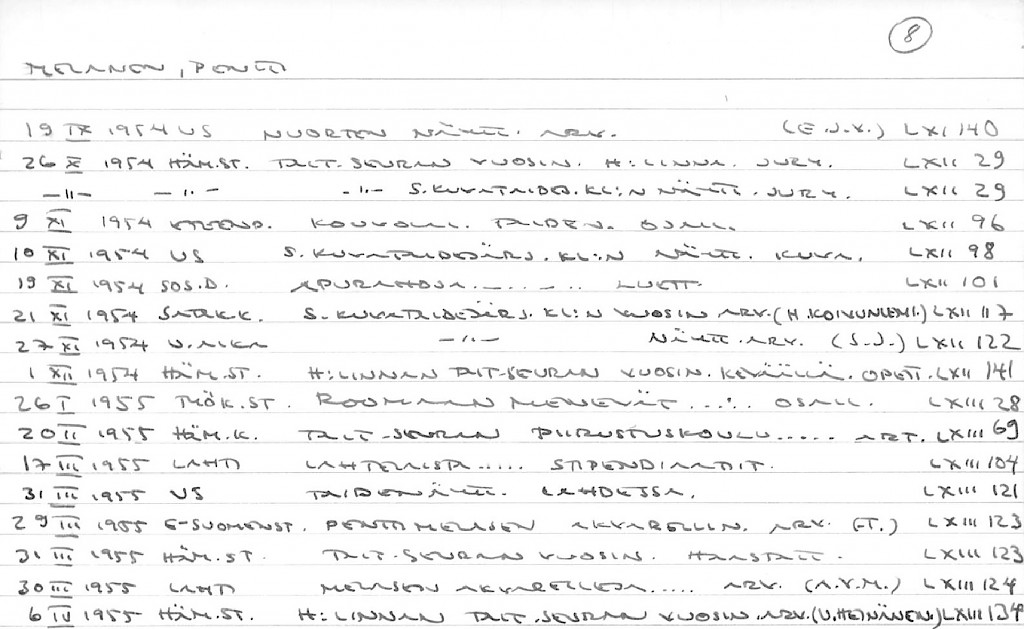 8
MELANEN, PENTTI
19 IX 1954 US NUORTEN NÄYTT. ARV. (E.J.V.) LXI 140
26 X 1954 HÄM.ST. TAIT-SEURAN VUOSIN. H:LINNA. JURY. LXII 29
—"— —"— —"— S.KUVATAIDEJ.KL:N NÄYTT. JURY. LXII 29
9 XI 1954 ETEENP. KOUVOLAN TAIDEN. OSALL. LXII 96
10 XI 1954 US S.KUVATAIDEJÄRJ.KL:N NÄYTT. KUVA. LXII 98
19 XI 1954 SOS.D. APURAHOJA........ LUETT. LXII 101
21 XI 1954 SATAK.K. S.KUVATAIDEJÄRJ.KL:N VUOSIN ARV.(H.KOIVUNIEMI.) LXII 117
27 XI 1954 U.AIKA —"— NÄYTT.ARV. (S.J.) LXII 122
1 XII 1954 HÄM.ST. H:LINNAN TAIT-SEURAN VUOSIN. KEVÄÄLLÄ. OPETT. LXII 141
26 I 1955 TYÖK.ST. ROOMAAN MENEVÄT ..... OSALL. LXIII 28
20 II 1955 HÄM.K. TAIT-SEURAN PIIRUSTUSKOULU..... ART. LXIII 69
17 III 1955 LAHTI LAHTELAISTA..... STIPENDIAATIT. LXIII 104
31 III 1955 US TAIDENÄYTT. LAHDESSA. LXIII 121
29 III 1955 E-SUOMENST. PENTTI MELASEN AKVARELLIN. ARV. (-T.) LXIII 123
31 III 1955 HÄM.ST. TAIT-SEURAN VUOSIN. HAASTATT. LXIII 123
30 III 1955 LAHTI MELASEN AKVARELLEJA..... ARV. (A.V.M.) LXIII 124
6 IV 1955 HÄM.ST. H:LINNAN TAIT.SEURAN VUOSIN.ARV.(U.HEINÄNEN.) LXIII 134